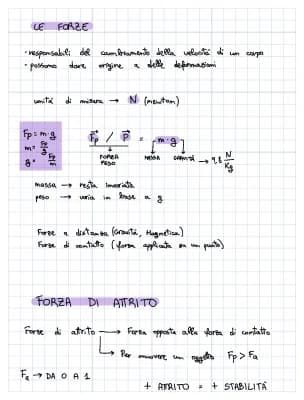 LE FORZE
- responsabili del cambiamento della velocità di un corpo
- possono dare origine a delle deformazioni
unità di misura → N (newton)
Fp = m·g
m = Fp/g
g = Fp/m
Fp / P = m·g
FORZA PESO MASSA GRAVITÀ → 9,8 N/Kg
massa → resta invariata
peso → varia in base a g
Forze a distanza (Gravità, Magnetica)
Forze di contatto (forza applicata su un punto)
FORZA DI ATTRITO
Forze di attrito → Forza opposta alla forza di contatto
→ Per muovere un oggetto Fp > Fa
Fa → DA 0 A 1
+ ATTRITO = + STABILITÀ